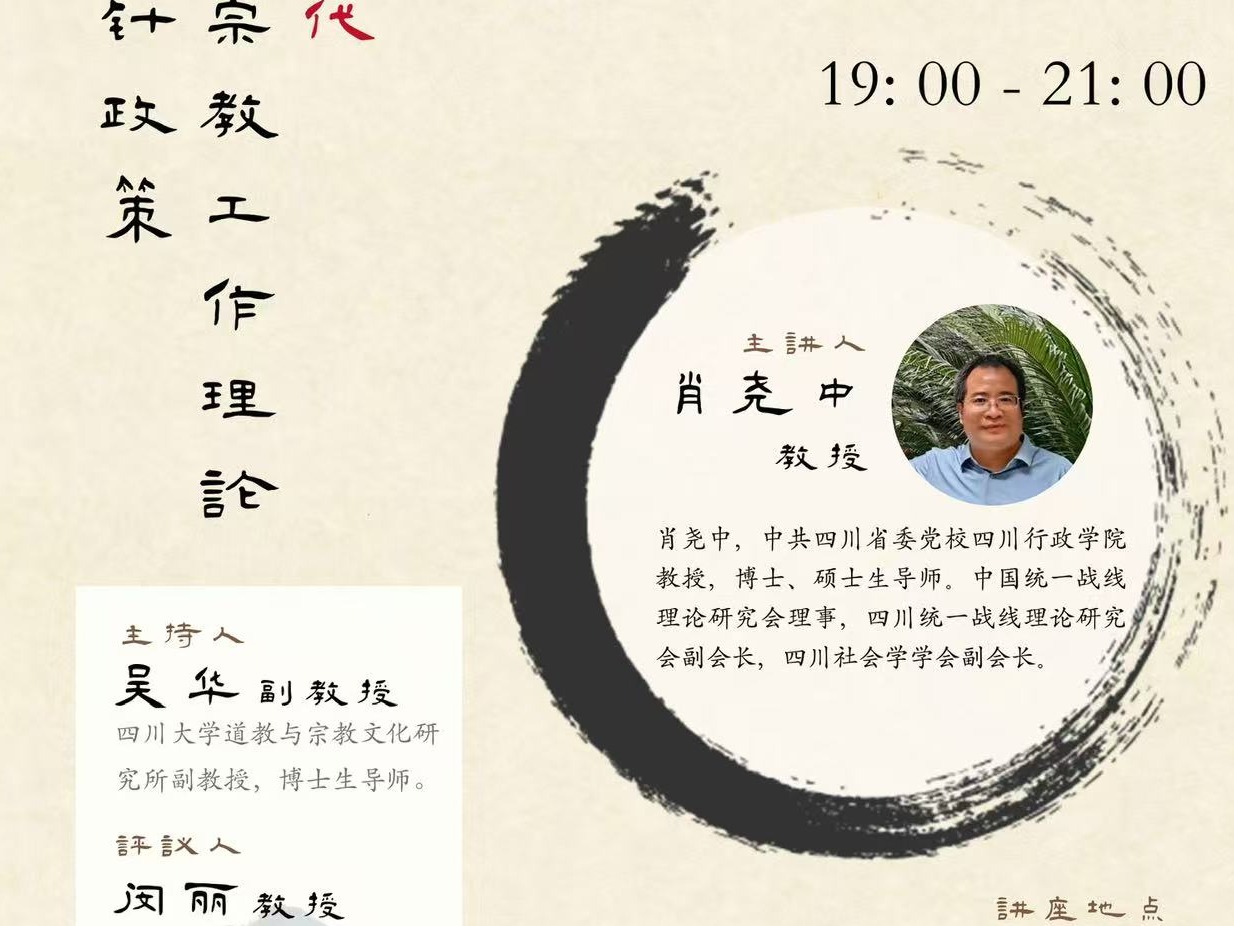 代
宗教工作理論
针政策
19: 00 - 21: 00
主講人
肖尧中
教授
肖尧中，中共四川省委党校四川行政学院
教授，博士、硕士生导师。中国统一战线
理论研究会理事，四川统一战线理论研究
会副会长，四川社会学学会副会长。
主持人
吴华副教授
四川大学道教与宗教文化研
究所副教授，博士生导师。
評議人
闵丽教授
講座地点